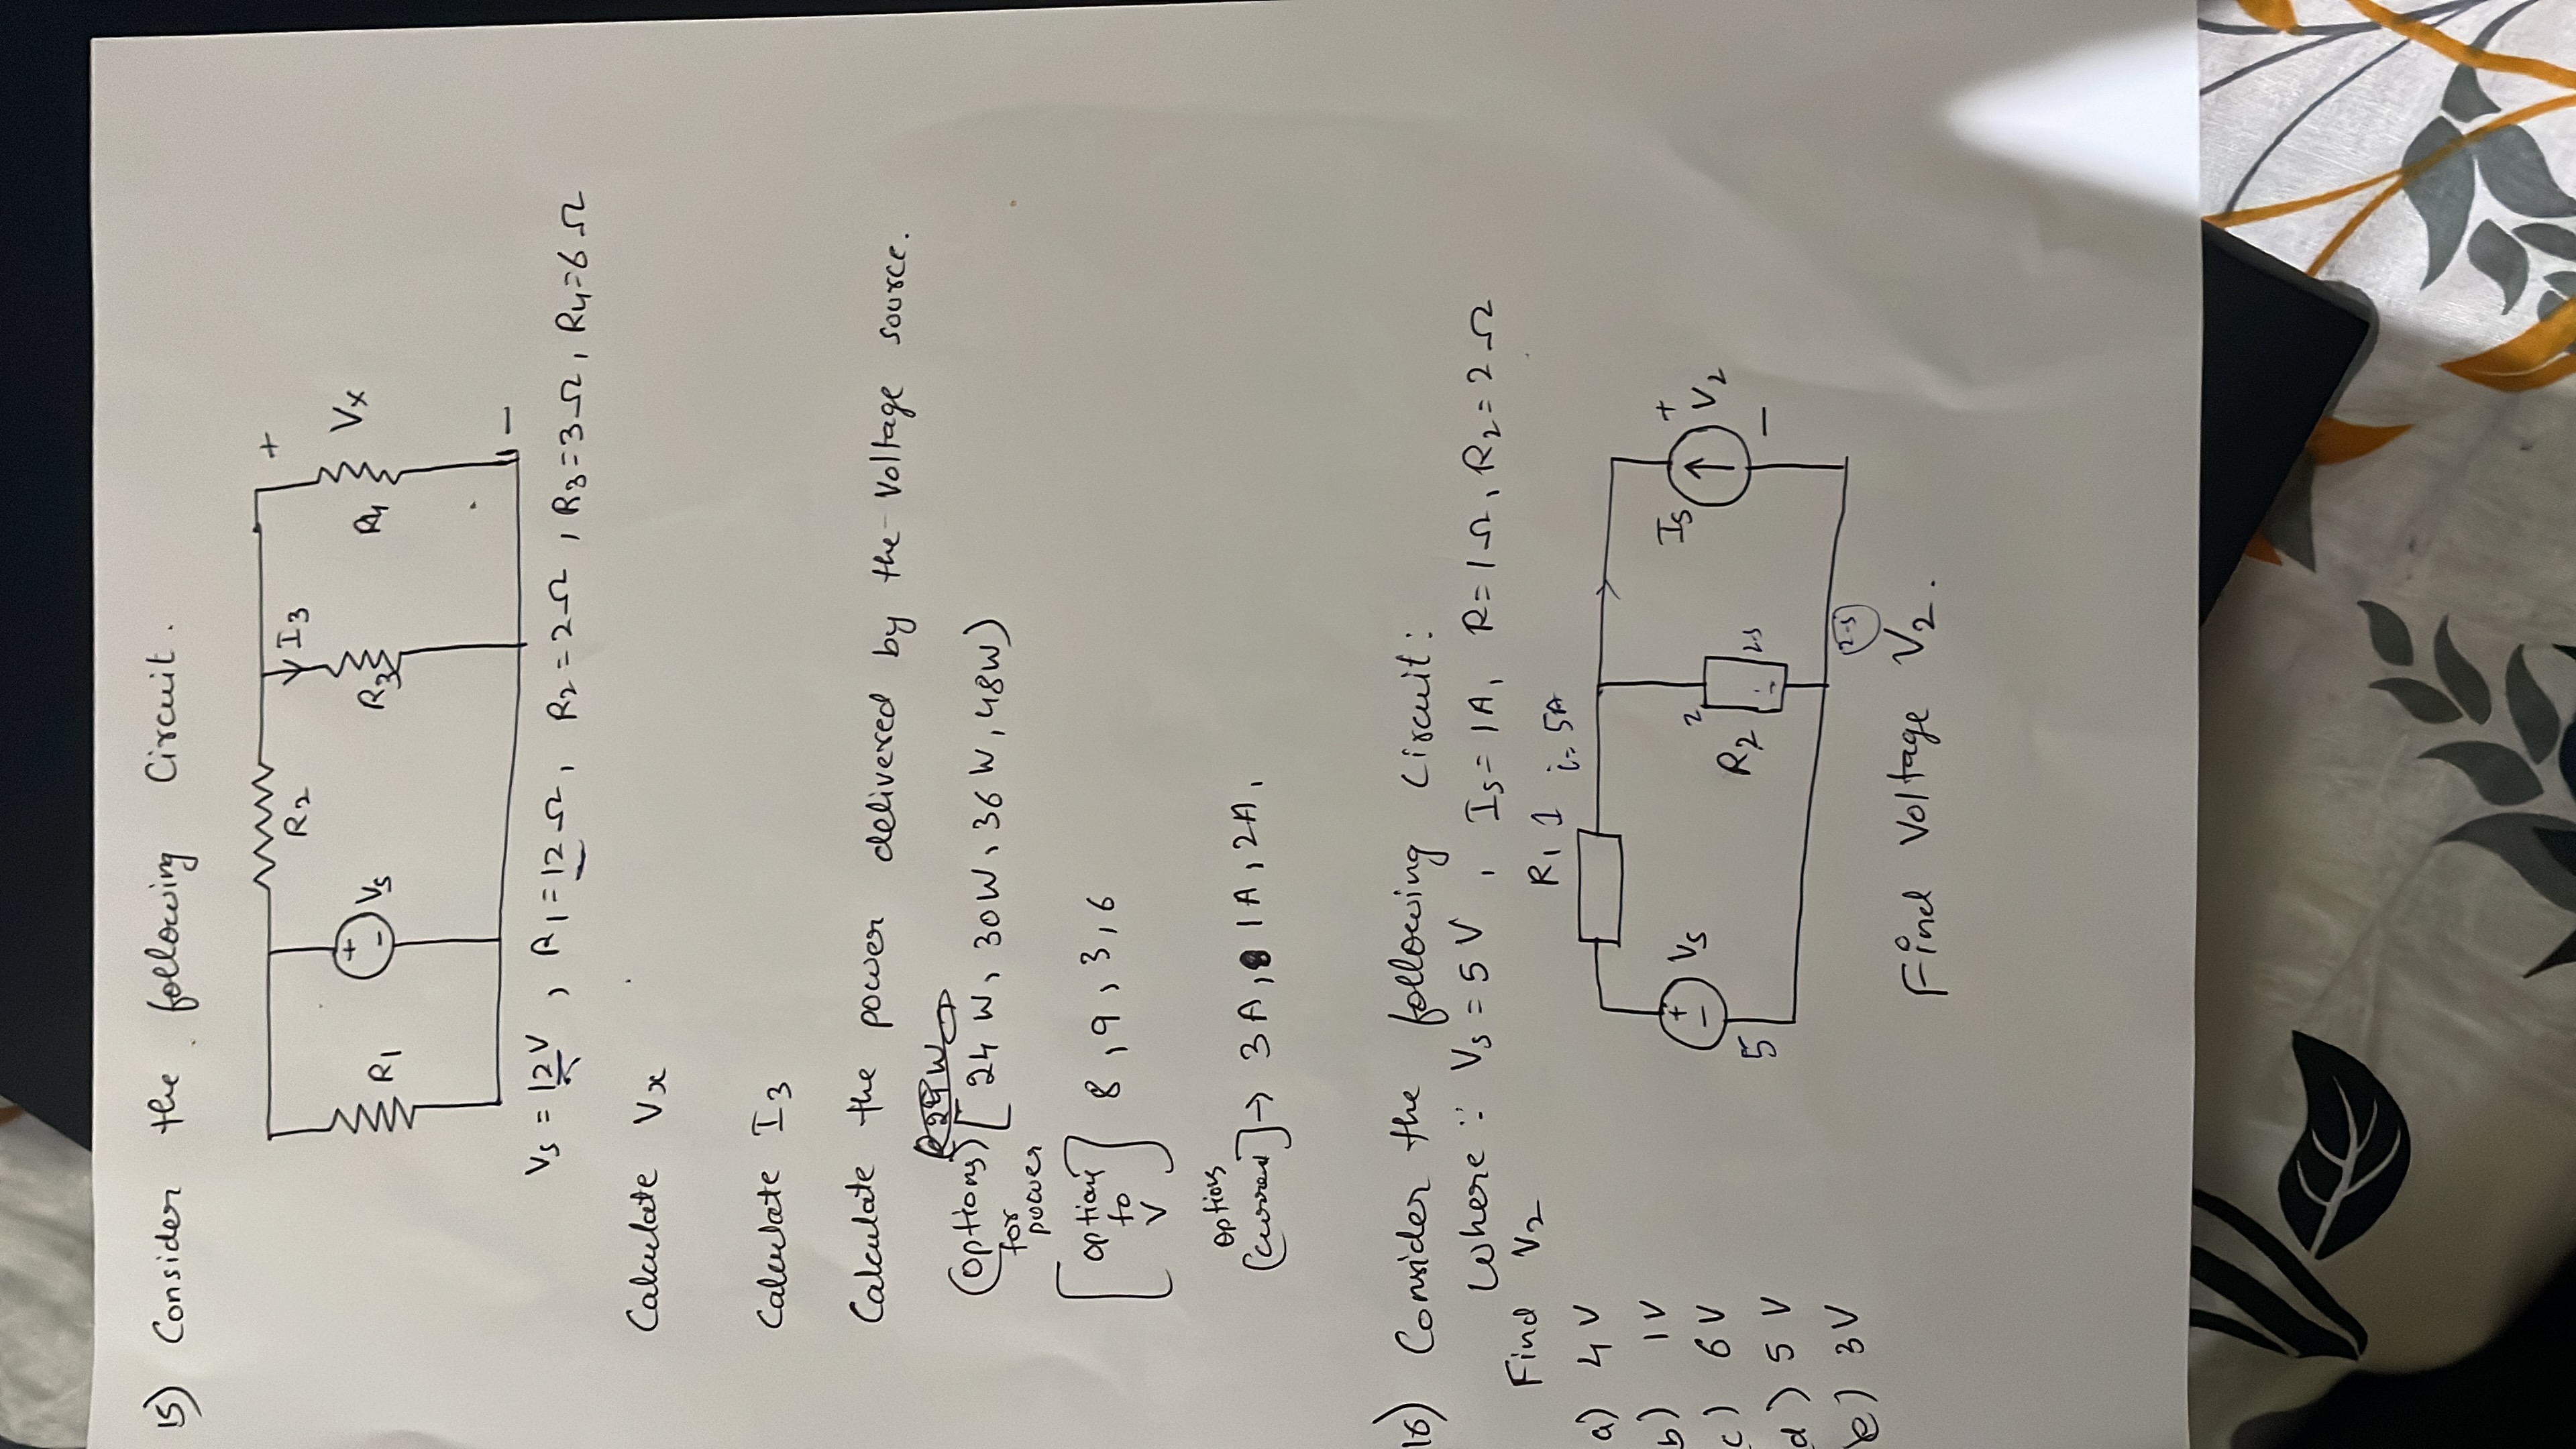 15) Consider the following Circuit.
R1
+
-
Vs
R2
I3
R3
R4
+
Vx
-
Vs = 12V, R1 = 12Ω, R2 = 2Ω, R3 = 3Ω, R4 = 6Ω
Calculate Vx
Calculate I3
Calculate the power delivered by the Voltage source.
(Options) for power [24 W, 30W, 36 W, 48W)
[option to V] 8, 9, 3, 6
option (current] → 3A, 1A, 2A,
16) Consider the following Circuit:
Where: Vs = 5V, Is = 1A, R = 1Ω, R2 = 2Ω
Find V2
a) 4 V
b) 1V
c) 6 V
d) 5 V
e) 3V
R1 1 i = 5A
+
-
Vs
5
2
R2
Is
+
V2
-
Find Voltage V2.